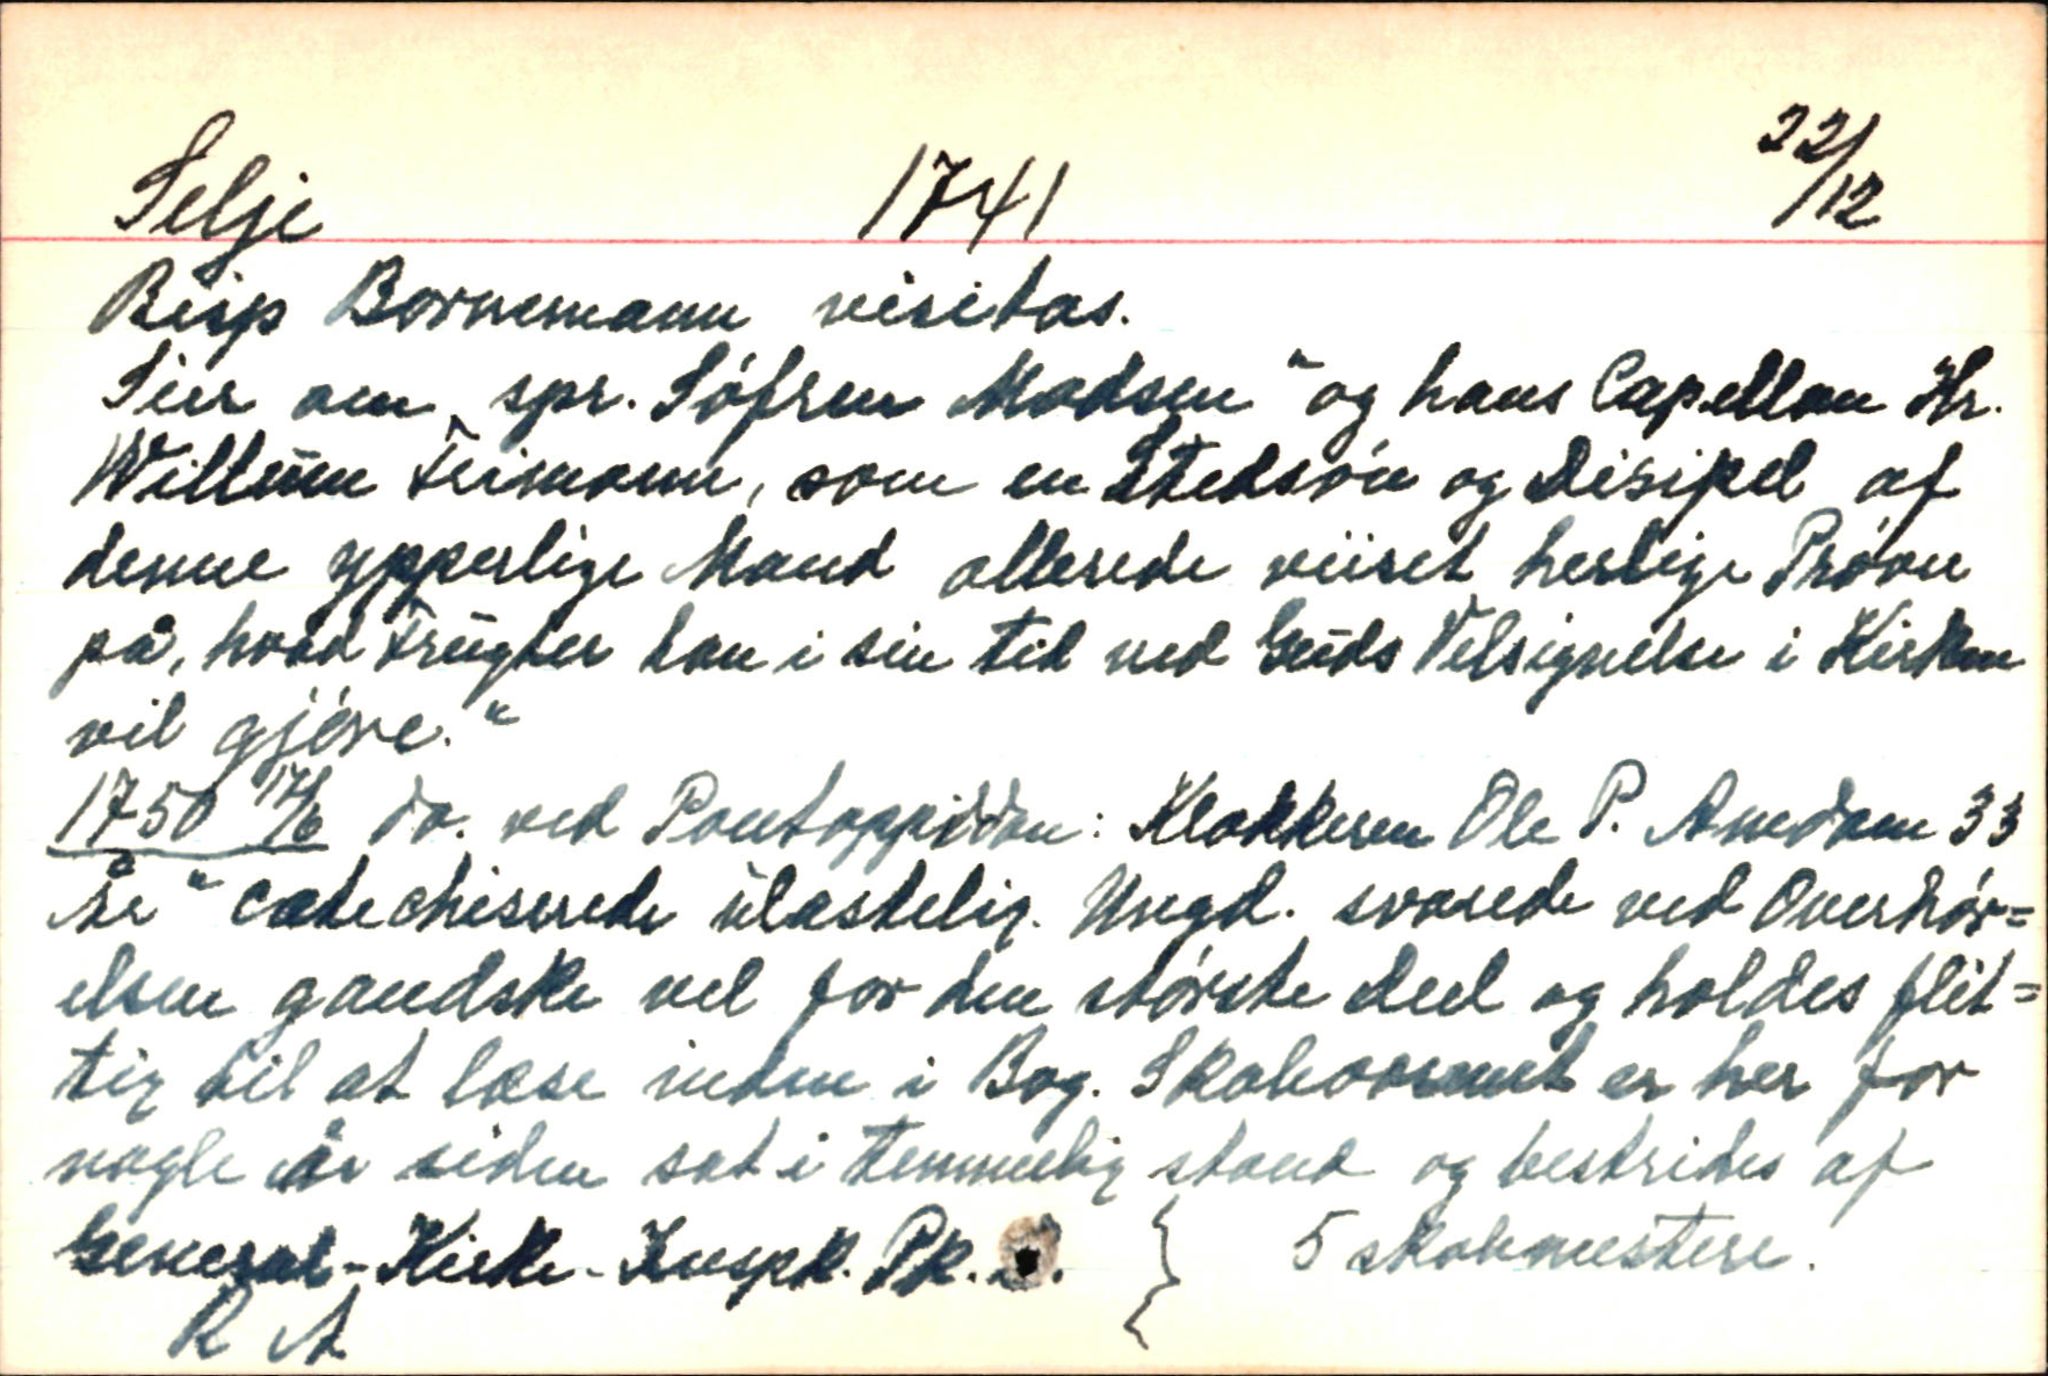 Selje 1741 22/12
Bisp Bornemann visitas.
Sier om spr. Söfren Madsen "og hans Capellan Hr.
Willum Frimann, som en Stedsön og Disipel af
denne ypperlige Mand allerede viiset herlige Pröver
på, hvad Frugter han i sin tid ved Guds Velsignelse i Kirken
vil gjöre."
1750 17/6 do. ved Pontoppidan: Klokkeren Ole P. Amdam 33
År "catechiserede ulastelig. Ungd. svarede ved Overhör=
elsen gandske vel for den störste Deel og holdes flit=
tig til at læse inden i Bog. Skolevæsenet er her for
nogle år siden sat i temmelig stand og bestrides af
General-Kirke-Inspk. Pk. } 5 skolemestere.
R A